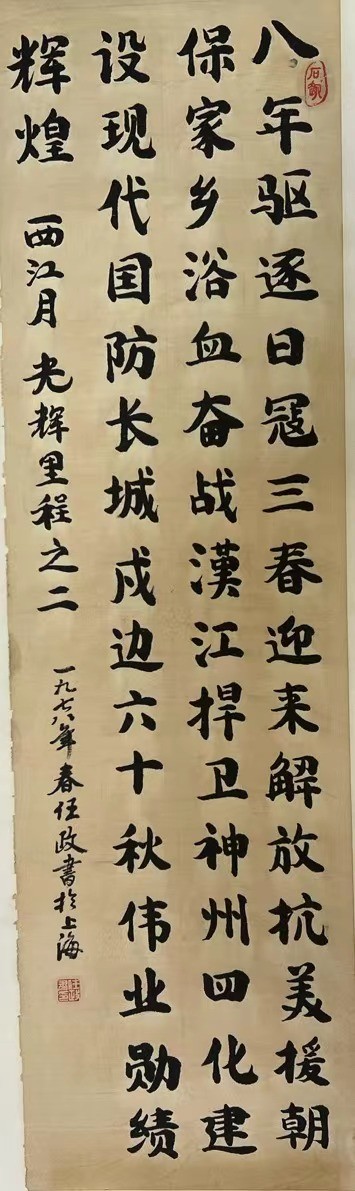 八年驱逐日寇三春迎来解放抗美援朝
保家乡浴血奋战汉江捍卫神州四化建
设现代国防长城戍边六十秋伟业勋绩
辉煌 西江月 光辉里程之二
一九七八年春任政书於上海